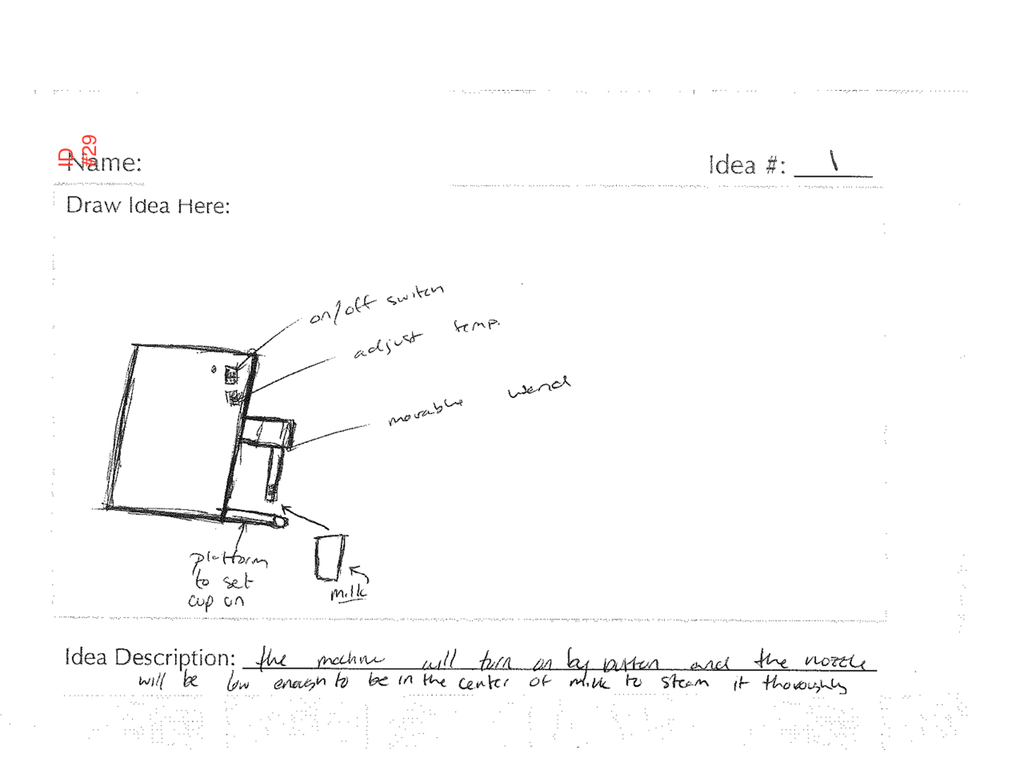 ID
#29
Name:
Idea #: 1
Draw Idea Here:
on/off switch
adjust temp.
movable wand
platform
to set
cup on
milk
Idea Description: the machine will turn on by button and the nozzle
will be low enough to be in the center of milk to steam it thoroughly